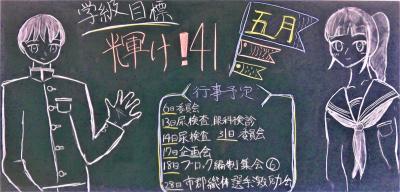 学級目標
輝け!41
五月
行事予定
6日委員会
13日尿検査 眼科検診
14日尿検査 31日委員会
17日企画会
18日ブロック編制集会⑥
28日市郡総体選手激励会